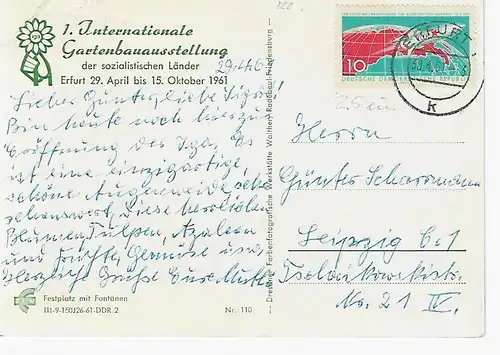 1. Internationale
Gartenbauausstellung
der sozialistischen Länder
Erfurt 29. April bis 15. Oktober 1961
29.4.61
Lieber Günter, liebe
Bin heute noch hier zur
Eröffnung der Iga. Es
ist eine einzigartige,
schöne Augenweide, sehr
sehenswert, diese herrlichen
Blumen, Tulpen, Azaleen
und Früchte, Gemüse usw.
Herzliche Grüße Eure Mutti
Festplatz mit Fontänen
III-9-150J26-61-DDR 2
Nr. 110
Dresdner Farbenfotografische Werkstätte Walther Radebeul-Friedensburg
10
DEUTSCHE DEMOKRATISCHE REPUBLIK
ERFURT
k
Herrn
Günter Scharrmann
Leipzig C.1
No. 21 IV.